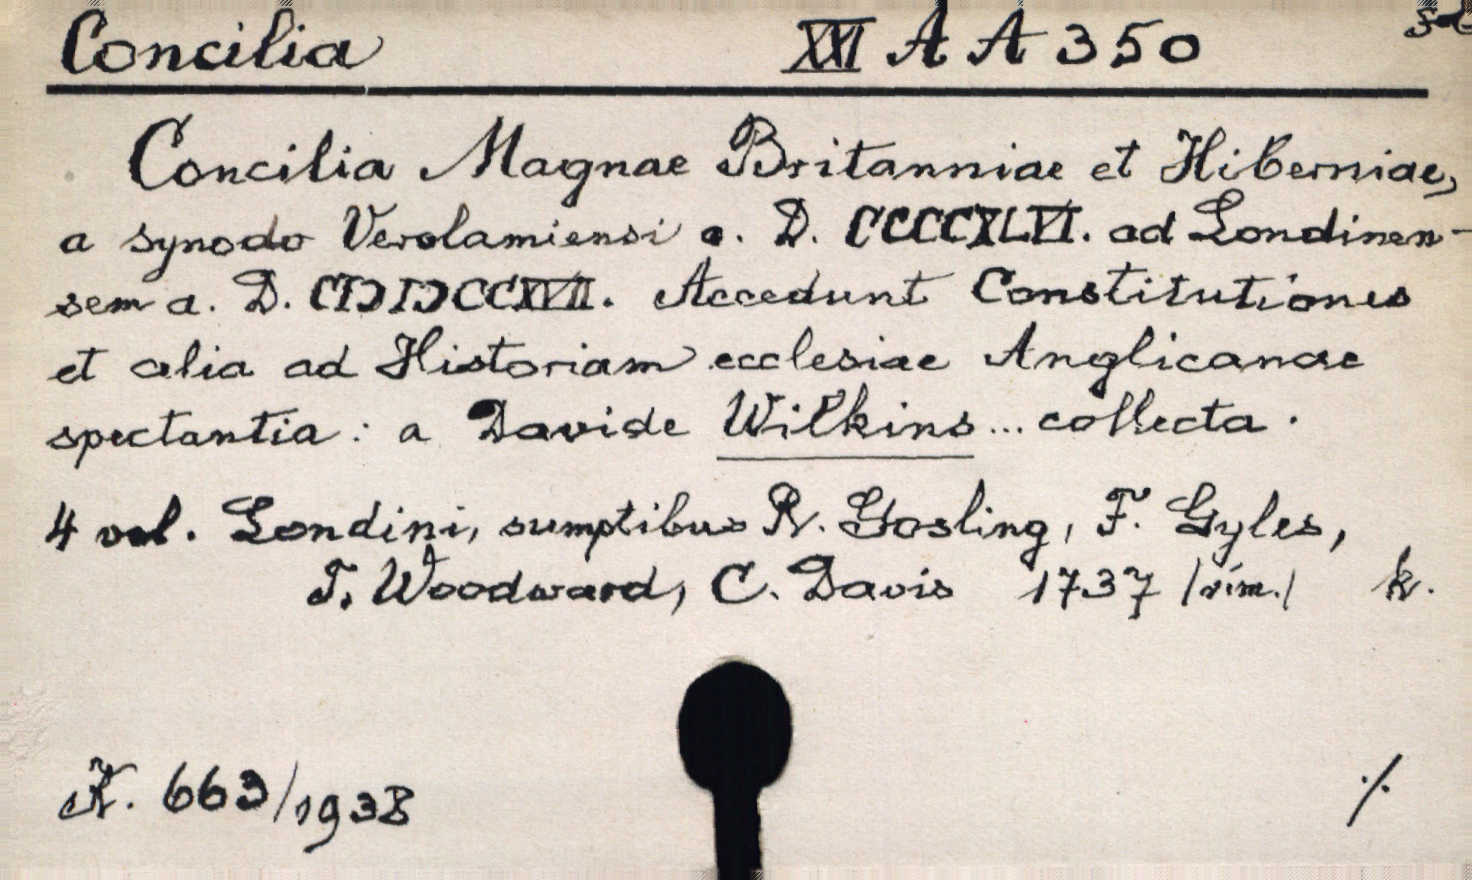 Concilia XXI A A 350
Concilia Magnae Britanniae et Hiberniae,
a synodo Verolamiensi a. D. CCCCXLVI. ad Londinen-
sem a. D. CIↃIↃCCXVII. Accedunt Constitutiones
et alia ad Historiam ecclesiae Anglicanae
spectantia: a Davide Wilkins... collecta.
4 vol. Londini, sumptibus R. Gosling, F. Gyles,
T. Woodward, C. Davis 1737 /rím./ k.
K. 663/1938 ./.